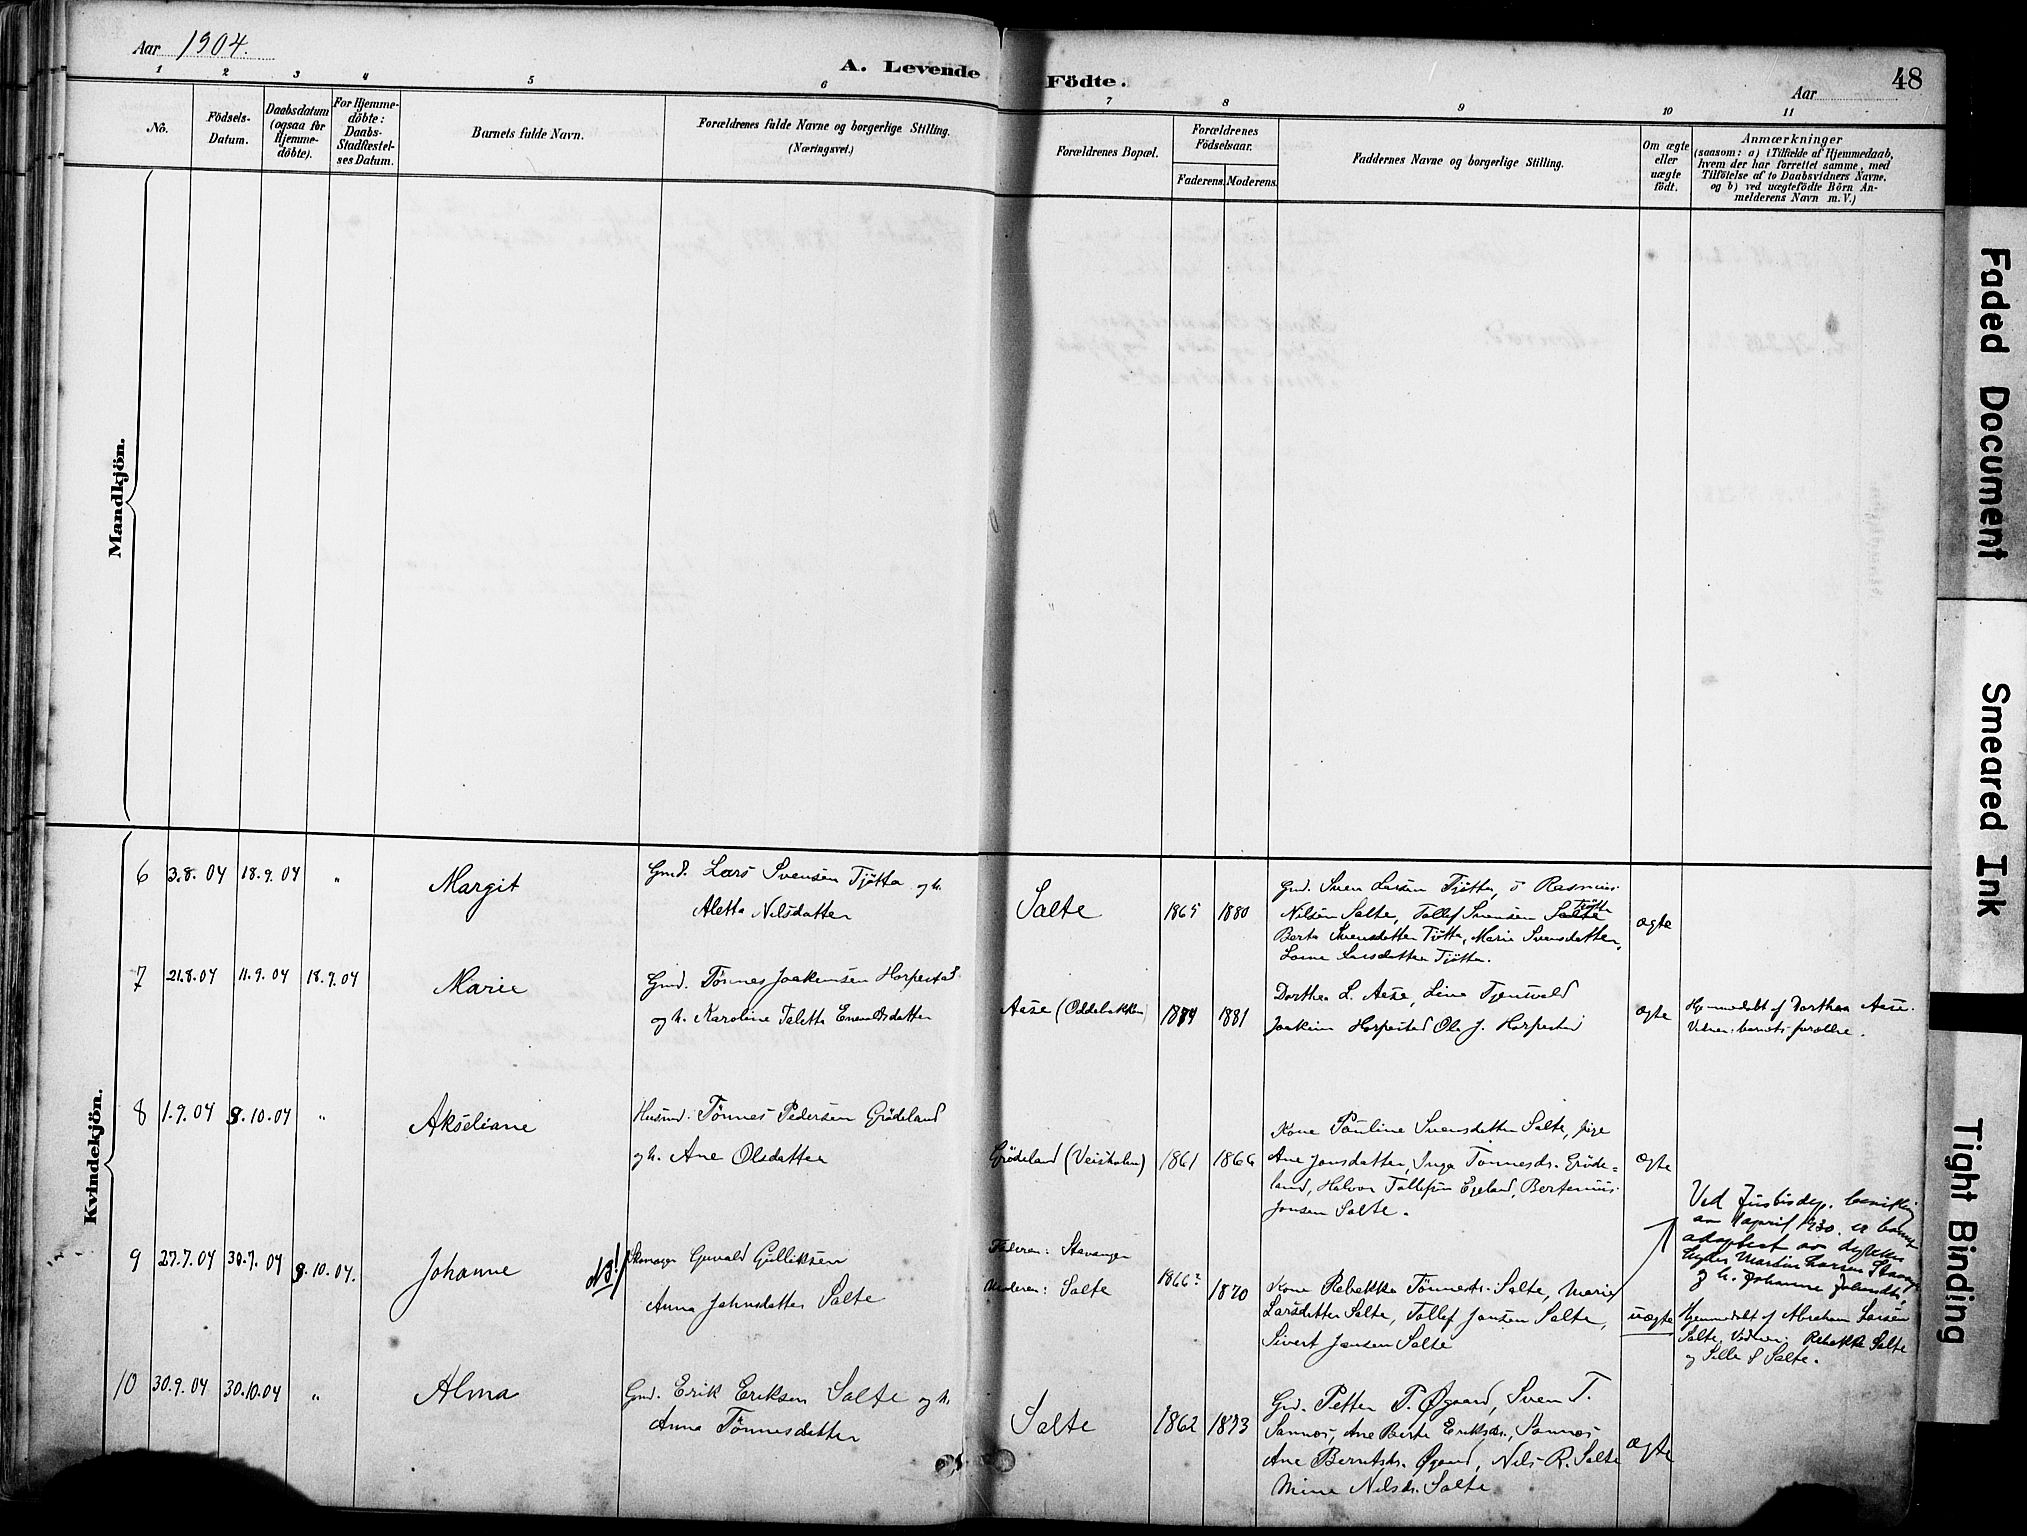 Aar 1904.
A. Levende Födte.
Aar
48
1 2 3 4 5 6 7 8 9 10 11
No.
Födsels-
Datum.
Daabsdatum
(ogsaa for
Hjemme-
döbte).
For Hjemme-
döbte:
Daabs-
Stadfæstel-
ses Datum.
Barnets fulde Navn.
Forældrenes fulde Navne og borgerlige Stilling.
(Næringsvei.)
Forældrenes Bopæl.
Forældrenes
Födselsaar.
Faderens. Moderens.
Faddernes Navne og borgerlige Stilling.
Om ægte
eller
uægte
födt.
Anmærkninger
(saasom: a) i Tilfælde af Hjemmedaab,
hvem der har forrettet samme, med
Tilföielse af to Daabsvidners Navne,
og b) ved uægtefödte Börn An-
melderens Navn m. V.)
Mandkjön.
Kvindekjön.
6 3.8.04 18.9.04 " Margit
Gmd. Lars Svensen Tjötta og h.
Aletta Nilsdatter
Salte 1865 1880
Gmd. Sven Larsen Tjötta, Rasmus
Nilsen Salte, Tollef Svensen Salte Tjötta
Berta Svensdatter Tjötta, Marie Svensdatter,
Larsdatter Tjötta.
ægte
7 21.8.04 11.9.04 18.9.04 Marie
Gmd. Tönnes Joakimsen Horpestad
og h. Karoline Taletta Enevaldsdatter
Aase (Oddebakken) 1881
Dorthea L. Aase, Line Tjensvold
Joakim Horpestad Ole J. Horpestad
ægte
Hjemmedöbt af Dorthea Aase.
Vidner: barnets forældre.
8 1.9.04 9.10.04 " Akseliane
Husmd. Tönnes Pedersen Grödeland
og h. Ane Olsdatter
Grödeland (Veisholm) 1861 1866
Kone Pauline Svensdatter Salte, pige
Ane Jonsdatter, Inga Tönnesdr. Gröde=
land, Halvor Tollefsen Egeland, Bertinius
Jonsen Salte.
ægte
9 27.7.04 30.7.04 9.10.04. Johanne
NB!
Skomager Gunvald Gulliksen
Anna Jahnsdatter Salte
Faderen: Stavanger
Moderen: Salte
1866? 1870
Kone Rebekka Tönnesdr. Salte, Marie
Larsdatter Salte, Tollef Jonsen Salte,
Sivert Jansen Salte
uægte
Ved Justisdep. bevilling
av 1 april 1930 er barnet
adoptert av
Martin Larsen
og h. Johanne
Hjemmedöbt af Abraham Larsen
Salte. Vidner: Rebekka Salte
og Sille S Salte.
10 30.9.04 30.10.04 " Alma
Gmd. Erik Eriksen Salte og h.
Anna Tönnesdatter
Salte 1862 1873
Gmd. Petter P. Øgaard, Sven T.
Somnes, Ane Berte Eriksdr. Somnes
Ane Berntsdr. Øgaard, Nils R. Salte
Mine Nilsdr. Salte
ægte
Faded Document
Smeared Ink
Tight Binding